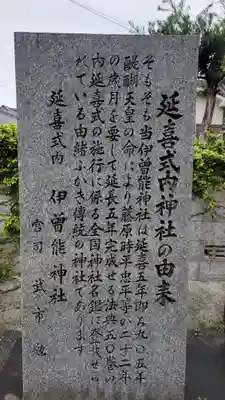 延喜式内神社の由来
そもそも当伊曽能神社は延喜五年即ち九〇五年
醍醐天皇の命により藤原時平忠平等が二十二年
の歳月を要して延長五年完成せる法典五〇巻の
内延喜式の施行に係る全国神社名鑑に登載せら
れている由緒ふかき伝統の神社であります
延喜式内 伊曽能神社
宮司 武市